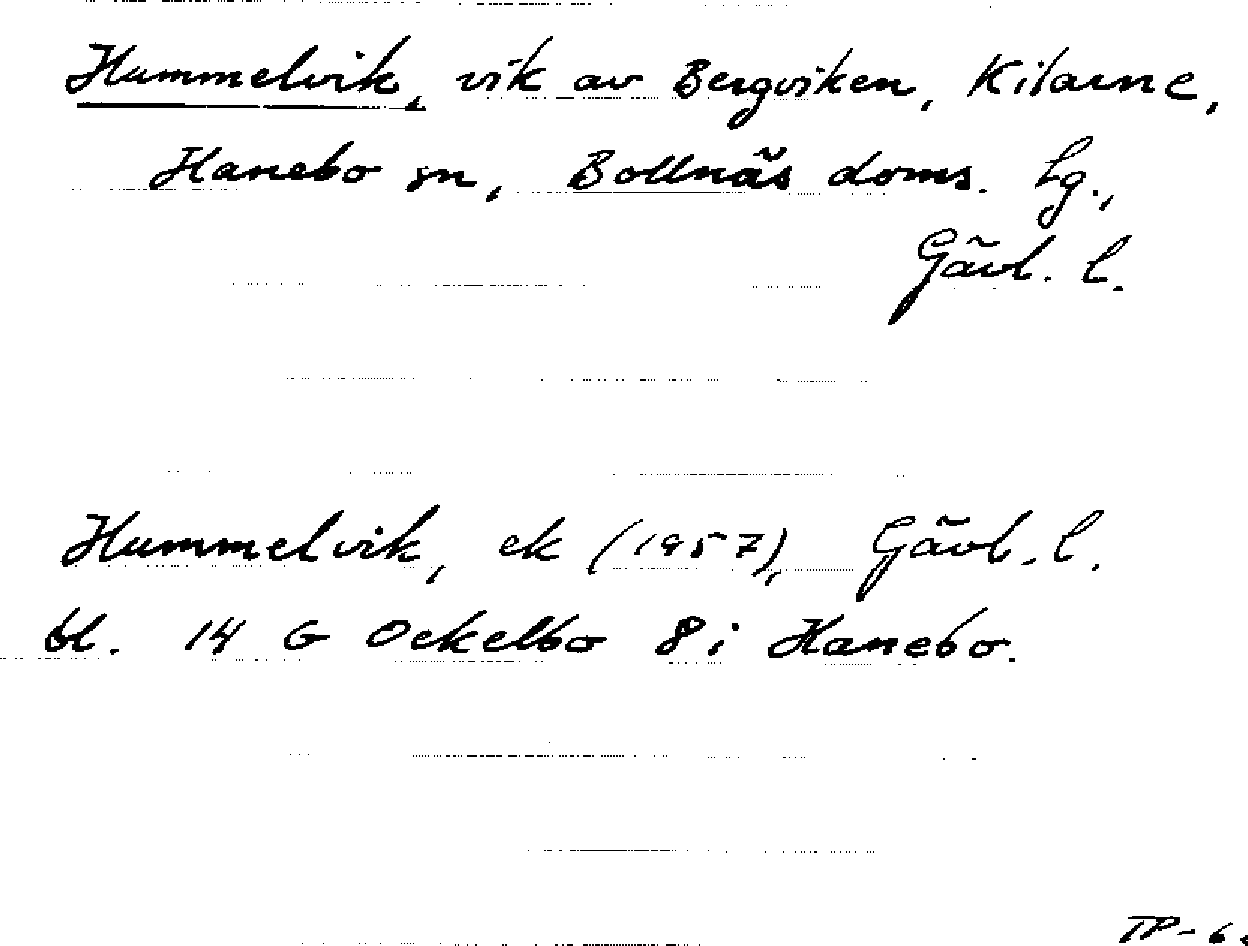 Hummelvik, vik av Bergviken, Kilarne,
Hanebo sn, Bollnäs doms. lg.,
Gävl. l.
Hummelvik, ek (1957), Gävl. l.
bl. 14 G Ockelbo 8 i Hanebo.
TP-6.